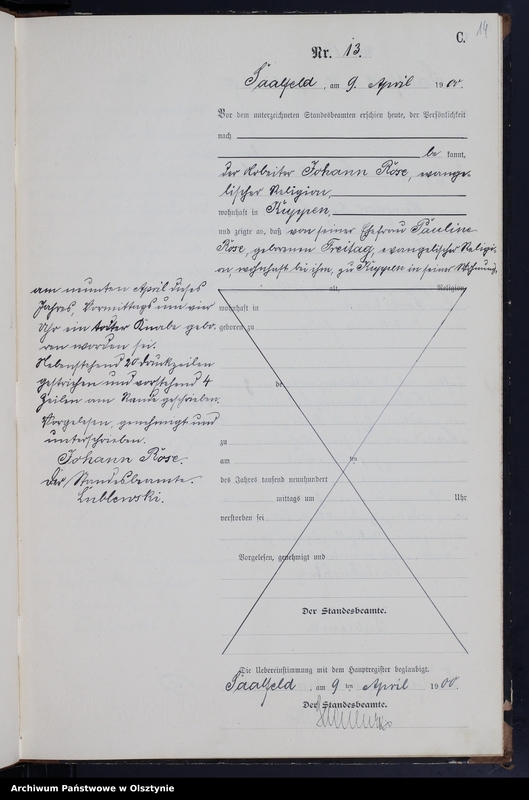 14
C.
Nr. 13.
Saalfeld, am 9. April 1900.
Vor dem unterzeichneten Standesbeamten erschien heute, der Persönlichkeit
nach
be kannt,
der Arbeiter Johann Röse, evange-
lischer Religion,
wohnhaft in Kuppen,
und zeigte an, daß von seiner Ehefrau Pauline
Röse, geborenen Freitag, evangelischer Religi-
on, wohnhaft bei ihm, zu Kuppen in seiner Wohnung,
am neunten April dieses
Jahres, Vormittags um vier
Uhr ein todter Knabe gebo-
ren worden sei.
Nebenstehend 20 Druckzeilen
gestrichen und vorstehend 4
Zeilen am Rande geschrieben.
Vorgelesen, genehmigt und
unterschrieben.
Johann Röse.
Der Standesbeamte.
Lublewski.
alt, Religion,
wohnhaft in
geboren zu
de
zu
am ten
des Jahres tausend neunhundert
mittags um Uhr
verstorben sei
Vorgelesen, genehmigt und
Der Standesbeamte.
Die Uebereinstimmung mit dem Hauptregister beglaubigt.
Saalfeld, am 9 ten April 1900.
Der Standesbeamte.
Archiwum Państwowe w Olsztynie